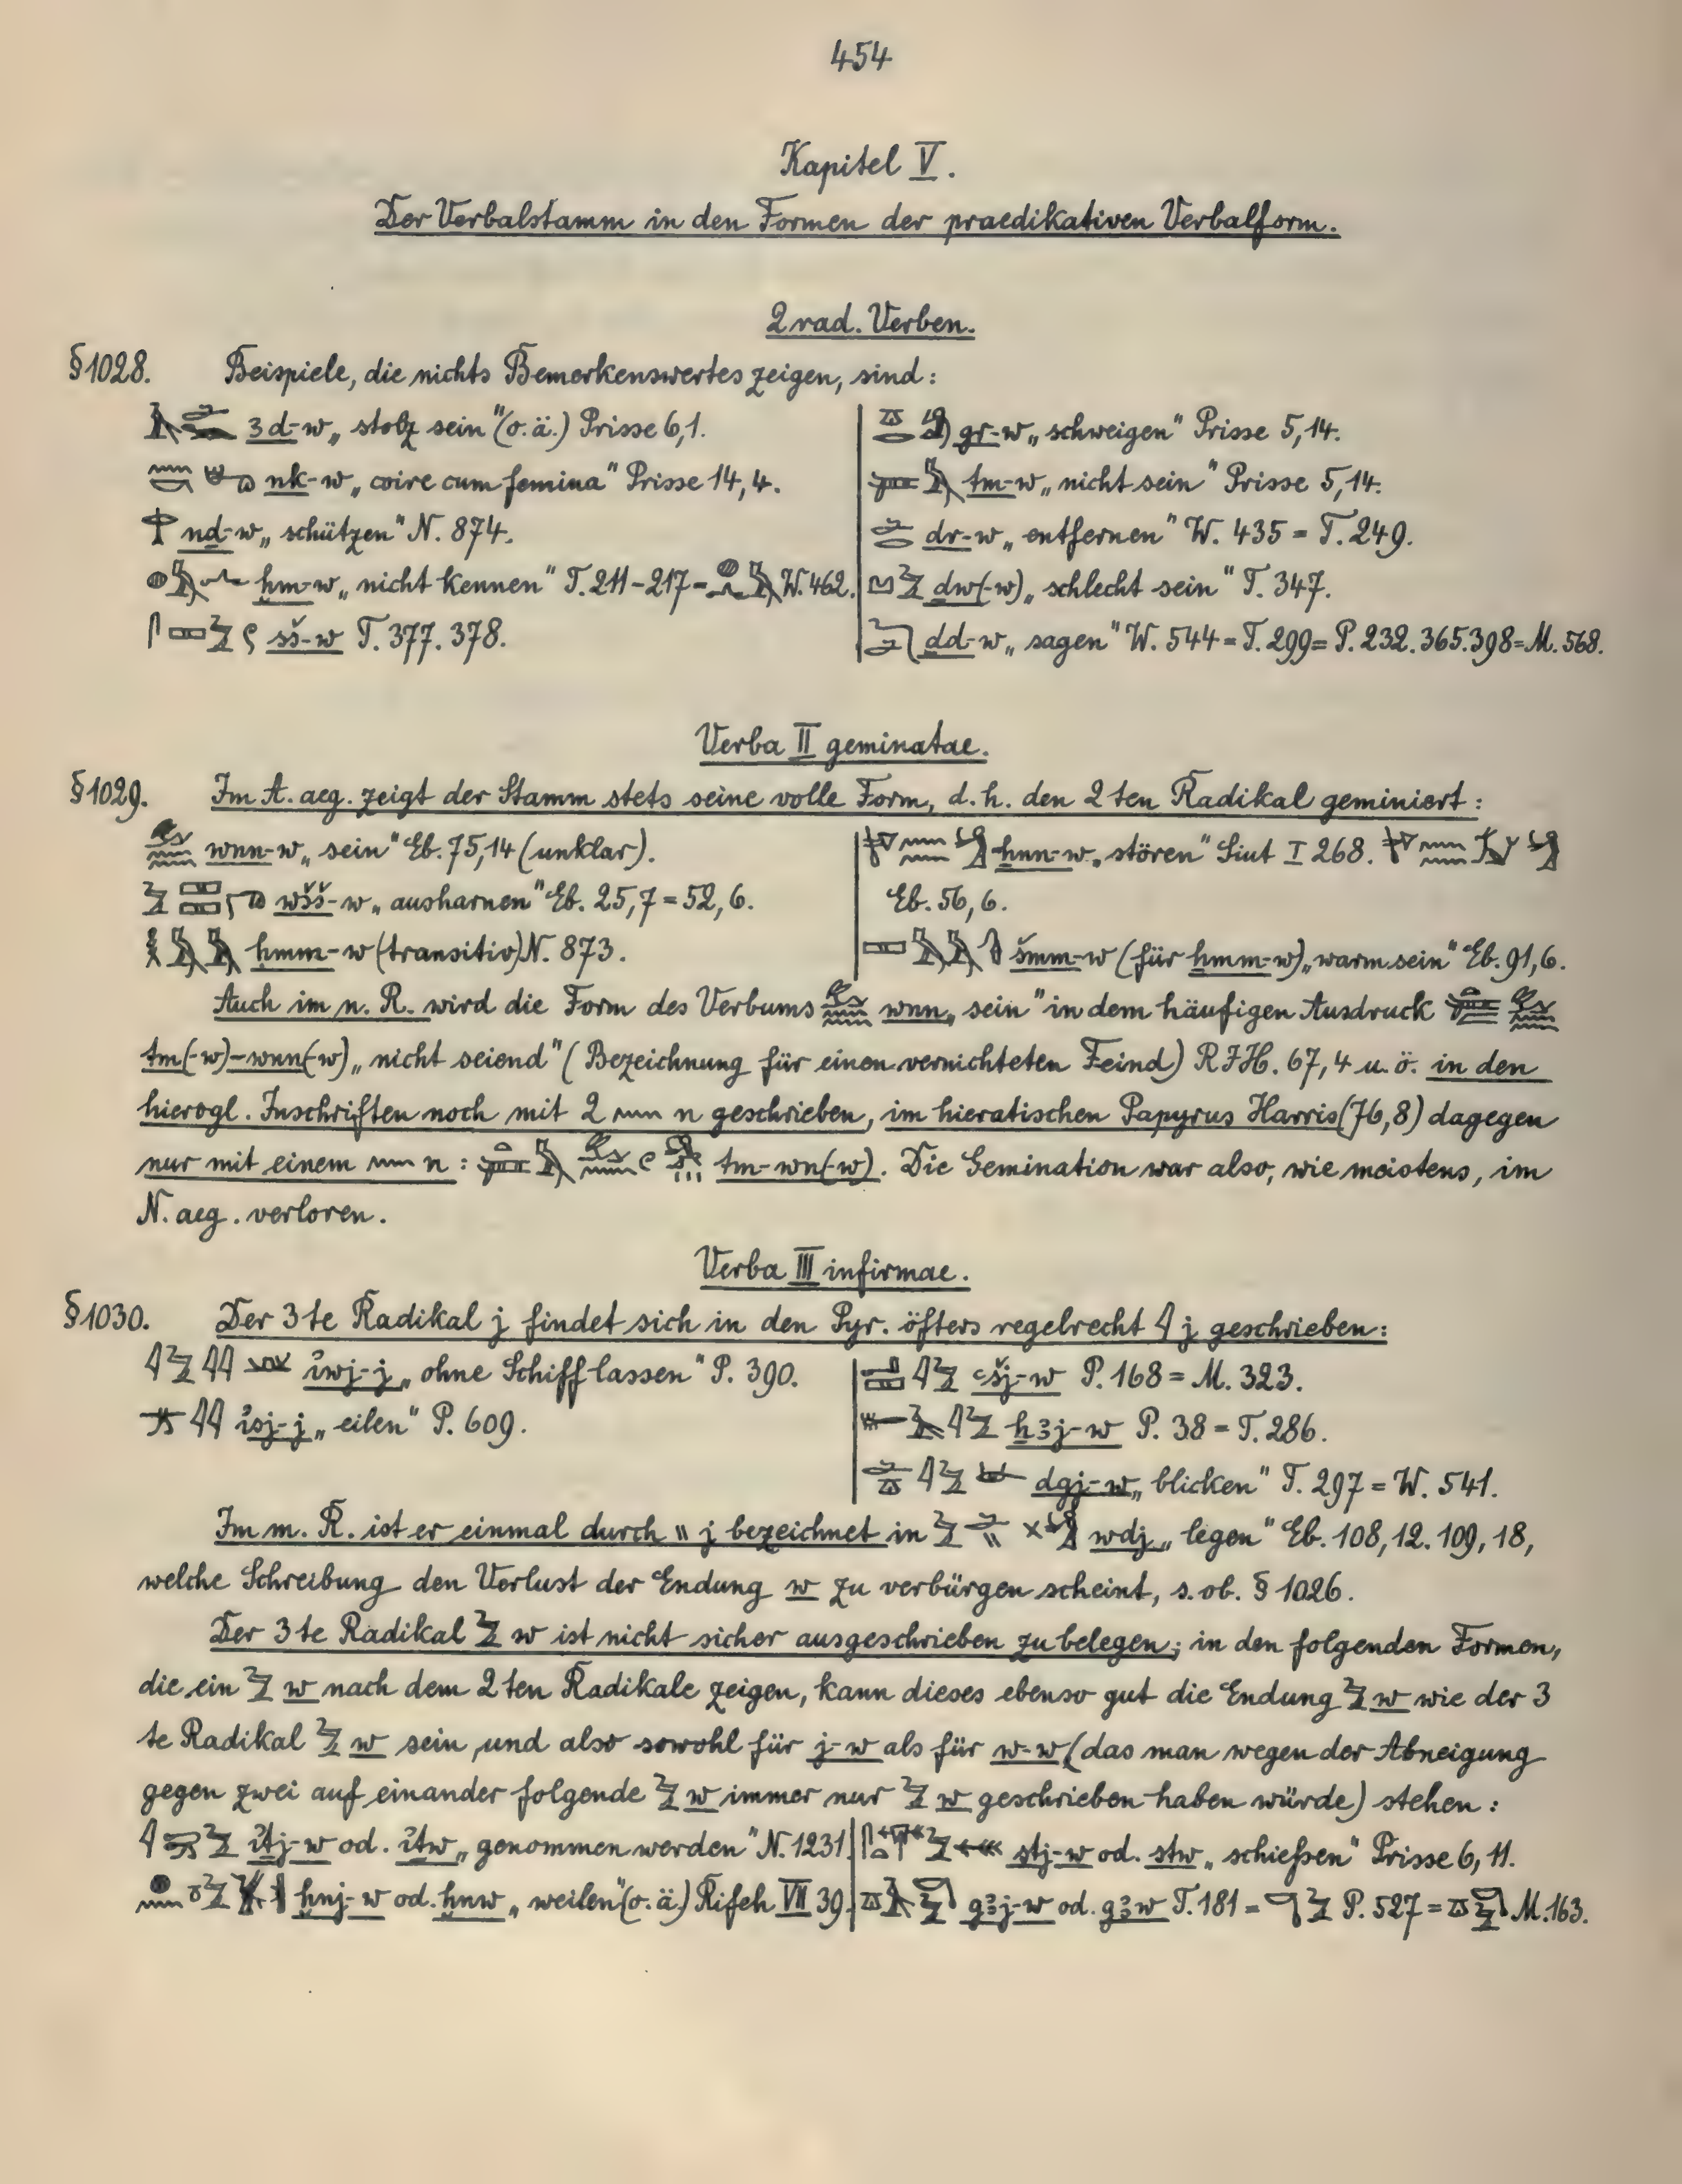 454
Kapitel V.
Der Verbalstamm in den Formen der praedikativen Verbalform.
2 rad. Verben.
§ 1028. Beispiele, die nichts Bemerkenswertes zeigen, sind:
ꜣd-w „stolz sein" (o.ä.) Prisse 6,1.
nk-w „coire cum femina" Prisse 14,4.
nḏ-w „schützen" N. 874.
ḫm-w „nicht kennen" T. 211-217 = W. 462.
sš-w T. 377. 378.
gr-w „schweigen" Prisse 5,14.
tm-w „nicht sein" Prisse 5,14.
dr-w „entfernen" W. 435 = T. 249.
ḏw(-w) „schlecht sein" T. 347.
ḏd-w „sagen" W. 544 = T. 299 = P. 232. 365. 398 = M. 568.
Verba II geminatae.
§ 1029. Im A. aeg. zeigt der Stamm stets seine volle Form, d.h. den 2ten Radikal geminiert:
wnn-w „sein" Eb. 75,14 (unklar).
wšš-w „ausharnen" Eb. 25,7 = 52,6.
ḥmm-w (transitiv) N. 873.
ẖnn-w „stören" Siut I 268.
Eb. 56,6.
šmm-w (für ẖmm-w) „warm sein" Eb. 91,6.
Auch im n. R. wird die Form des Verbums wnn „sein" in dem häufigen Ausdruck
tm(-w)-wnn(-w) „nicht seiend" (Bezeichnung für einen vernichteten Feind) RJH. 67,4 u. ö. in den
hierogl. Inschriften noch mit 2 𓈖 n geschrieben, im hieratischen Papyrus Harris (76,8) dagegen
nur mit einem 𓈖 n: tm-wn(-w). Die Gemination war also, wie meistens, im
N. aeg. verloren.
Verba III infirmae.
§ 1030. Der 3te Radikal j findet sich in den Pyr. öfters regelrecht 𓇋 j geschrieben:
ı͗wj-j „ohne Schiff lassen" P. 390.
ı͗sj-j „eilen" P. 609.
ꜥšj-w P. 168 = M. 323.
ẖꜣj-w P. 38 = T. 286.
dgj-w „blicken" T. 297 = W. 541.
Im m. R. ist er einmal durch 𓏭 j bezeichnet in wdj „legen" Eb. 108,12. 109,18,
welche Schreibung den Verlust der Endung w zu verbürgen scheint, s. ob. § 1026.
Der 3te Radikal 𓅱 w ist nicht sicher ausgeschrieben zu belegen; in den folgenden Formen,
die ein 𓅱 w nach dem 2ten Radikale zeigen, kann dieses ebenso gut die Endung 𓅱 w wie der 3
te Radikal 𓅱 w sein, und also sowohl für j-w als für w-w (das man wegen der Abneigung
gegen zwei auf einander folgende 𓅱 w immer nur 𓅱 w geschrieben haben würde) stehen:
ı͗ṯj-w od. ı͗ṯw „genommen werden" N. 1231.
ḫnj-w od. ḫnw „weilen" (o. ä.) Rifeh VII 39.
stj-w od. stw „schießen" Prisse 6,11.
gꜣj-w od. gꜣw T. 181 = P. 527 = M. 163.